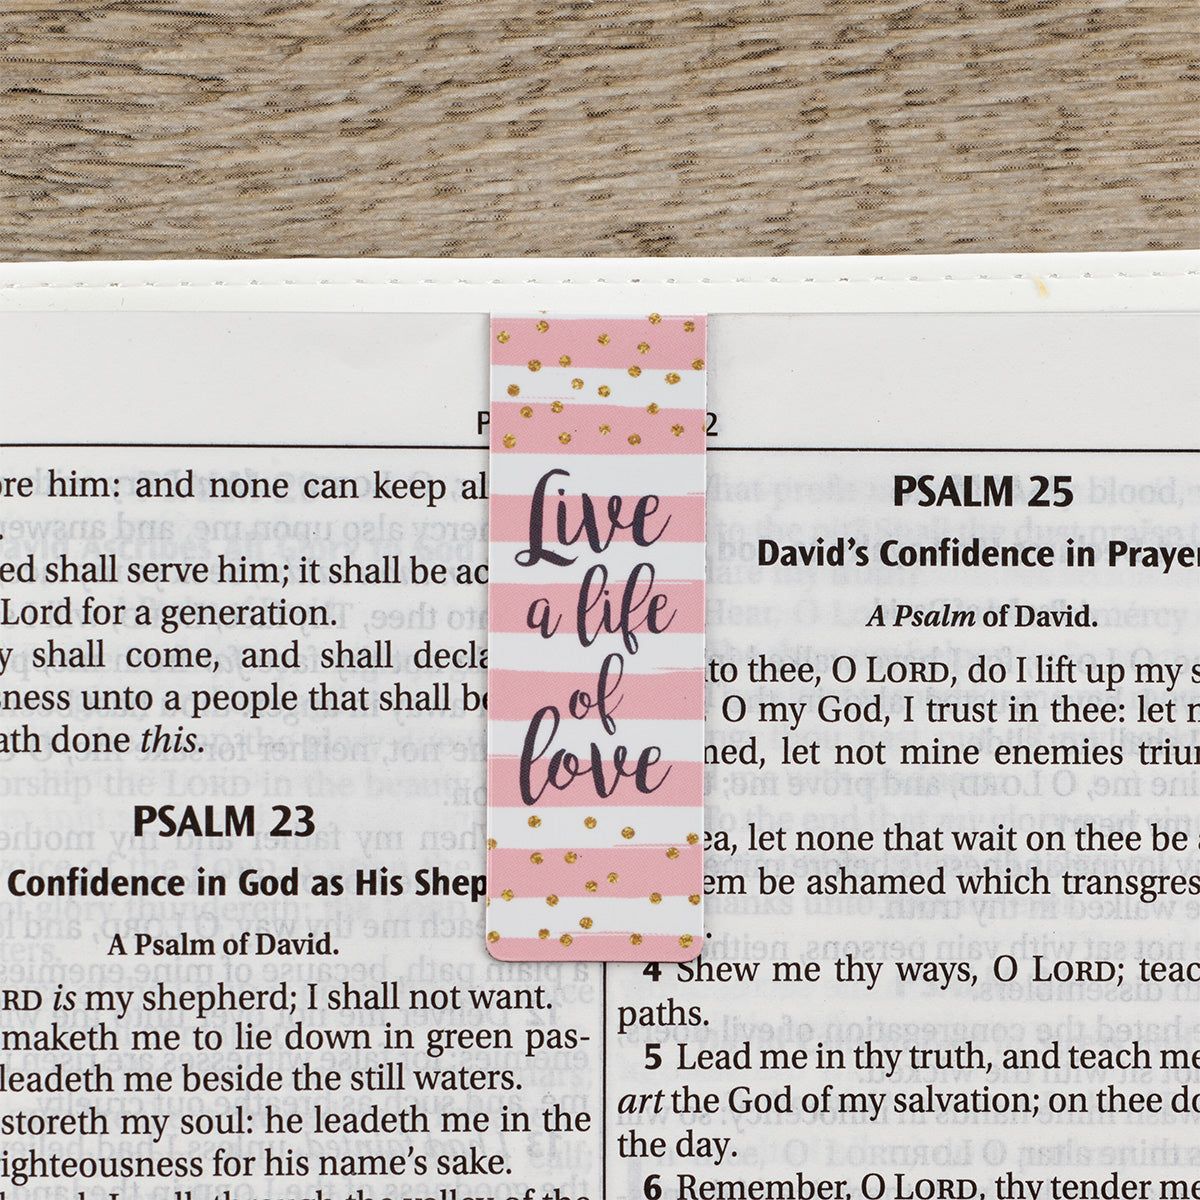 P
2
ore him: and none can keep al
.
ed shall serve him; it shall be ac
Lord for a generation.
y shall come, and shall decla
sness unto a people that shall be
ath done this.
PSALM 23
Confidence in God as His Shep
A Psalm of David.
RD is my shepherd; I shall not want.
maketh me to lie down in green pas-
leadeth me beside the still waters.
storeth my soul: he leadeth me in the
ighteousness for his name's sake.
Live
a life
of
love
PSALM 25
David's Confidence in Prayer
A Psalm of David.
to thee, O LORD, do I lift up my s
O my God, I trust in thee: let n
ned, let not mine enemies triu
ea, let none that wait on thee be a
em be ashamed which transgres
.
4 Shew me thy ways, O LORD; teac
paths.
5 Lead me in thy truth, and teach me
art the God of my salvation; on thee do
the day.
6 Remember, O LORD, thy tender me